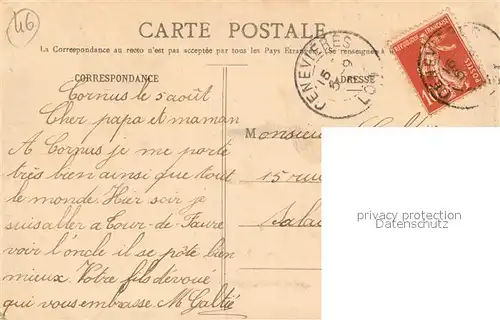 46
CARTE POSTALE
La Correspondance au recto n'est pas acceptée par tous les Pays Etrangers. (Se renseigner à
CORRESPONDANCE
ADRESSE
Cornus le 5 août
Cher papa et maman
A Cornus je me porte
très bien ainsi que tout
le monde. Hier soir je
suis aller a Tour-de-Faure
voir l'oncle il se pôte bien
mieux. Votre fils dévoué
qui vous embrasse. M. Galtié
Monsieur
15 rue
GENEVIERES
LOT
REPUBLIQUE FRANÇAISE
POSTES
10
privacy protection
Datenschutz